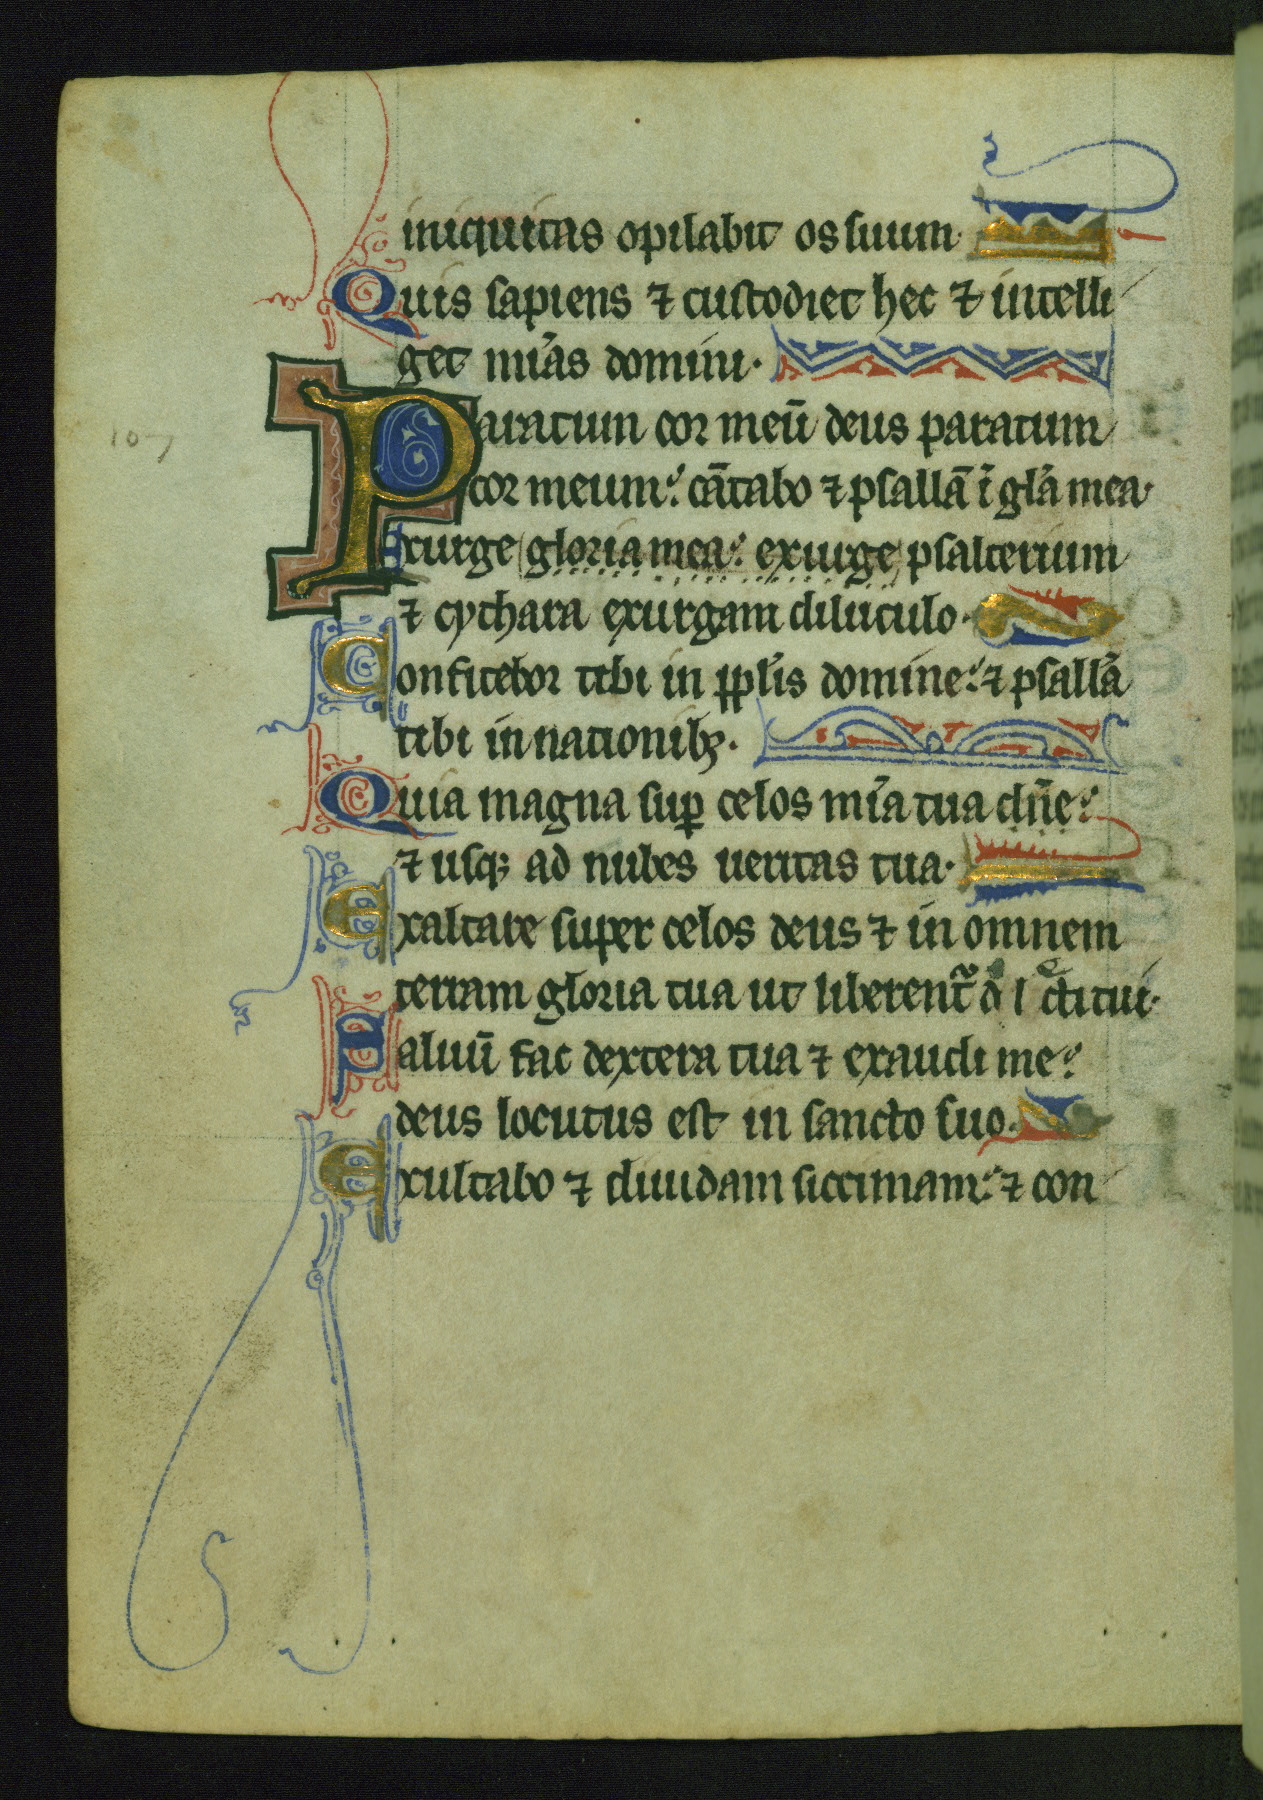 iniquitas opilabit os suum·
Quis sapiens ⁊ custodiet hec ⁊ intelli
get mi᷑as domini·
Paratum cor meū deus paratum
107
cor meum: cātabo ⁊ psallā ī gl̄a mea·
Exurge gloria mea: exurge psalterium
⁊ cythara exurgam diluculo·
Confitebor tibi in ppl̄is domine: ⁊ psallā
tibi in nationibꝫ·
Quia magna suꝑ celos mīa tua dn̄e:
⁊ usqꝫ ad nubes ueritas tua·
Exaltare super celos deus ⁊ in omnem
terram gloria tua ut liberent᷑ tui·
Saluū fac dextera tua ⁊ exaudi me:
deus locutus est in sancto suo·
Exultabo ⁊ diuidam siccimam: ⁊ con